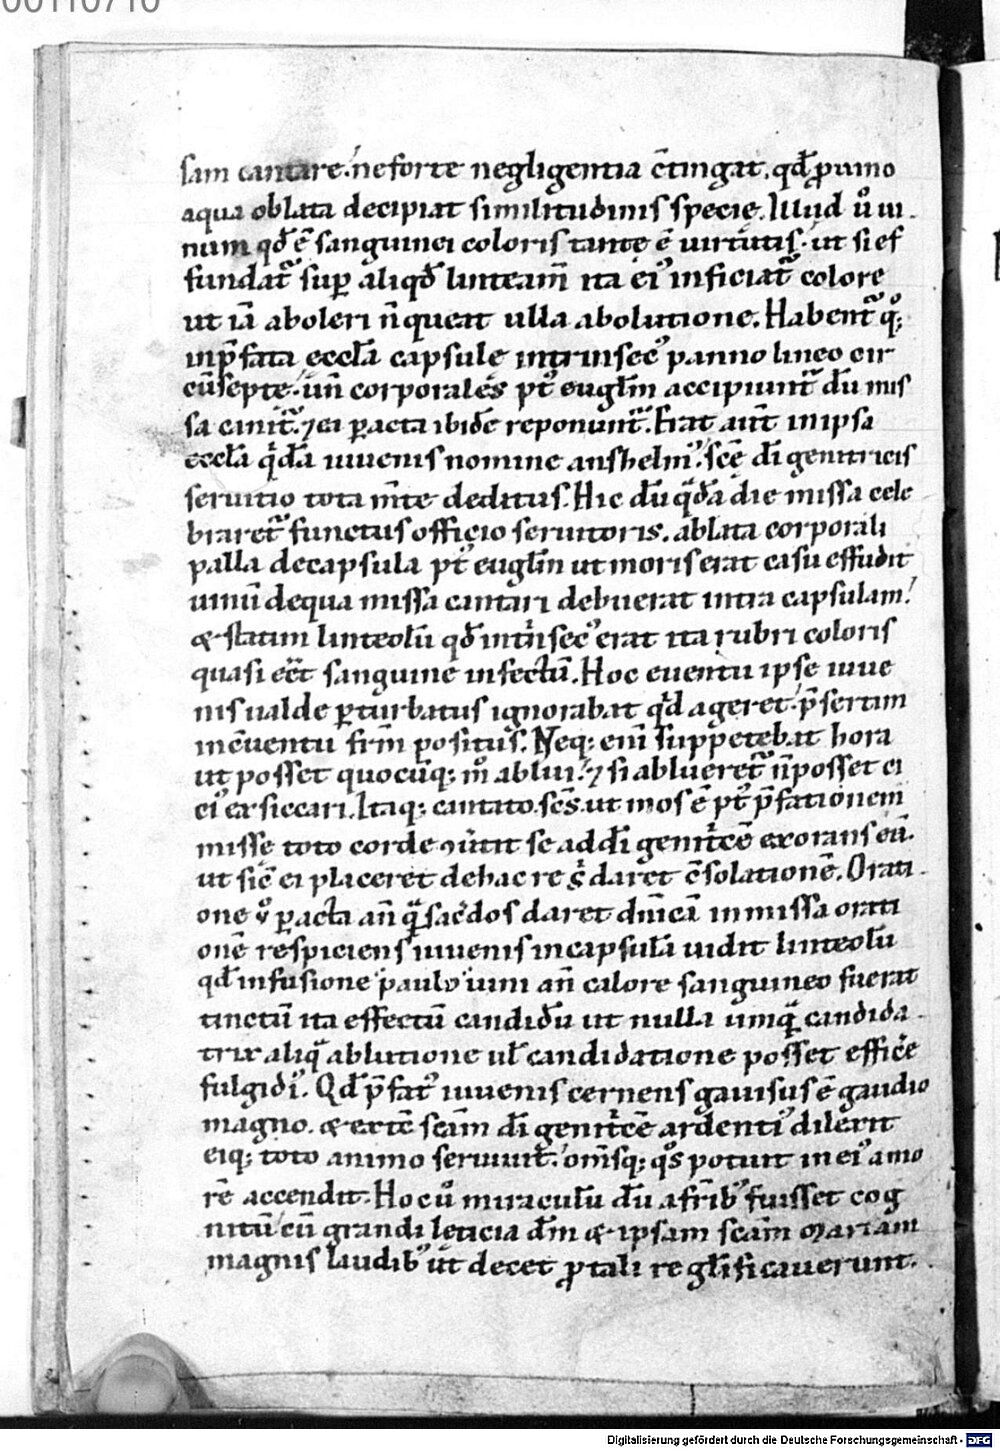 00110710
sam cantare. ne forte negligentia c̄tingat. qd̄ p̱ uino
aqua oblata decipiat similitudinis specie. Illud ů ui-
num qd̄ ē sanguinei coloris tantę ē uirtutis. ut si ef
fundat᷑ sup̱ aliqd̄ linteam̄ ita ei᷒ inficiat᷑ colore
ut iā aboleri n̄ queat ulla abolutione. Habent᷑ q̊;
in p̄fata eccl̄a capsulę intrinsec᷒ panno lineo cir
cūsepte. un̄ corporales pt᷒ euglm̄ accipiunt᷑ dū mis
sa cinit᷑. ⁊ ea p̱acta ibidē reponunt᷑. Erat aūt in ipsa
eccl̄a qͥdā iuuenis nomine anshelm᷒. scę̄ dī genitricis
seruitio tota m̄te deditus. Hic dū qͣdā die missa cele
braret᷑ functus officio seruitoris. ablata corporali
palla de capsula pt᷒ euglm̄ ut moris erat casu effudit
uinū de qua missa cantari debuerat intra capsulam.
& statim linteolū qd̄ intͥnsec᷒ erat ita rubri coloris
quasi eēt sanguine infectū. Hoc euentu ipse iuue
nis ualde p̱turbatus ignorabat qͥd ageret. p̄sertim
in cūentu frm̄ positus. Neq; eni suppetebat hora
ut posset quocūq; m̊ ablui. ⁊ si ablueret᷑ n̄ posset ei
ei᷒ exsiccari. Itaq; cantato. scs̄. ut mos ē pt᷒ p̄fationem
missę toto corde ꝯuertit se ad dī genitͥcē exorans eā.
ut sic̄ ei placeret de hac re sͥ daret c̄solationē. Orati-
one ů p̱acta an̄ qͣ sac̄dos daret dnīcā in missa orati
onē respiciens iuuenis in capsulā uidit linteolū
qd̄ infusione paulo uini an̄ calore sanguineo fuerat
tinctū ita effectū candidū ut nulla umqͣ candida-
trix aliqͣ ablutione ul̄ candidatione posset effic̄e
fulgidi᷒. Qd̄ p̄fat᷒ iuuenis cernens gauisus ē gaudio
magno. & ex tc̄ scā̄m dī genitͥcē ardenti᷒ dilexit
eiq; toto animo seruiuit. om̄sq; qͦs potuit in ei᷒ amo
rē accendit. Hoc ů miraculū dū a frīb᷒ fuisset cog
nitū cū grandi leticia dm̄ & ipsam scā̄m mariam
magnis laudib᷒ ut decet p̱ tali re glīficauerunt.
Digitalisierung gefördert durch die Deutsche Forschungsgemeinschaft - DFG